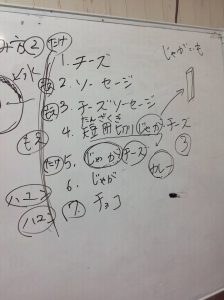 み方② たけ
じゃがいも
1. チーズ
水
2. ソーセージ
3. チーズソーセージ
たんざく
もえ 4. 短冊切りじゃがチーズ
③
たけ 5. じゃがチーズ
カレー
6. じゃが
ハユン 7. チョコ
ハユン